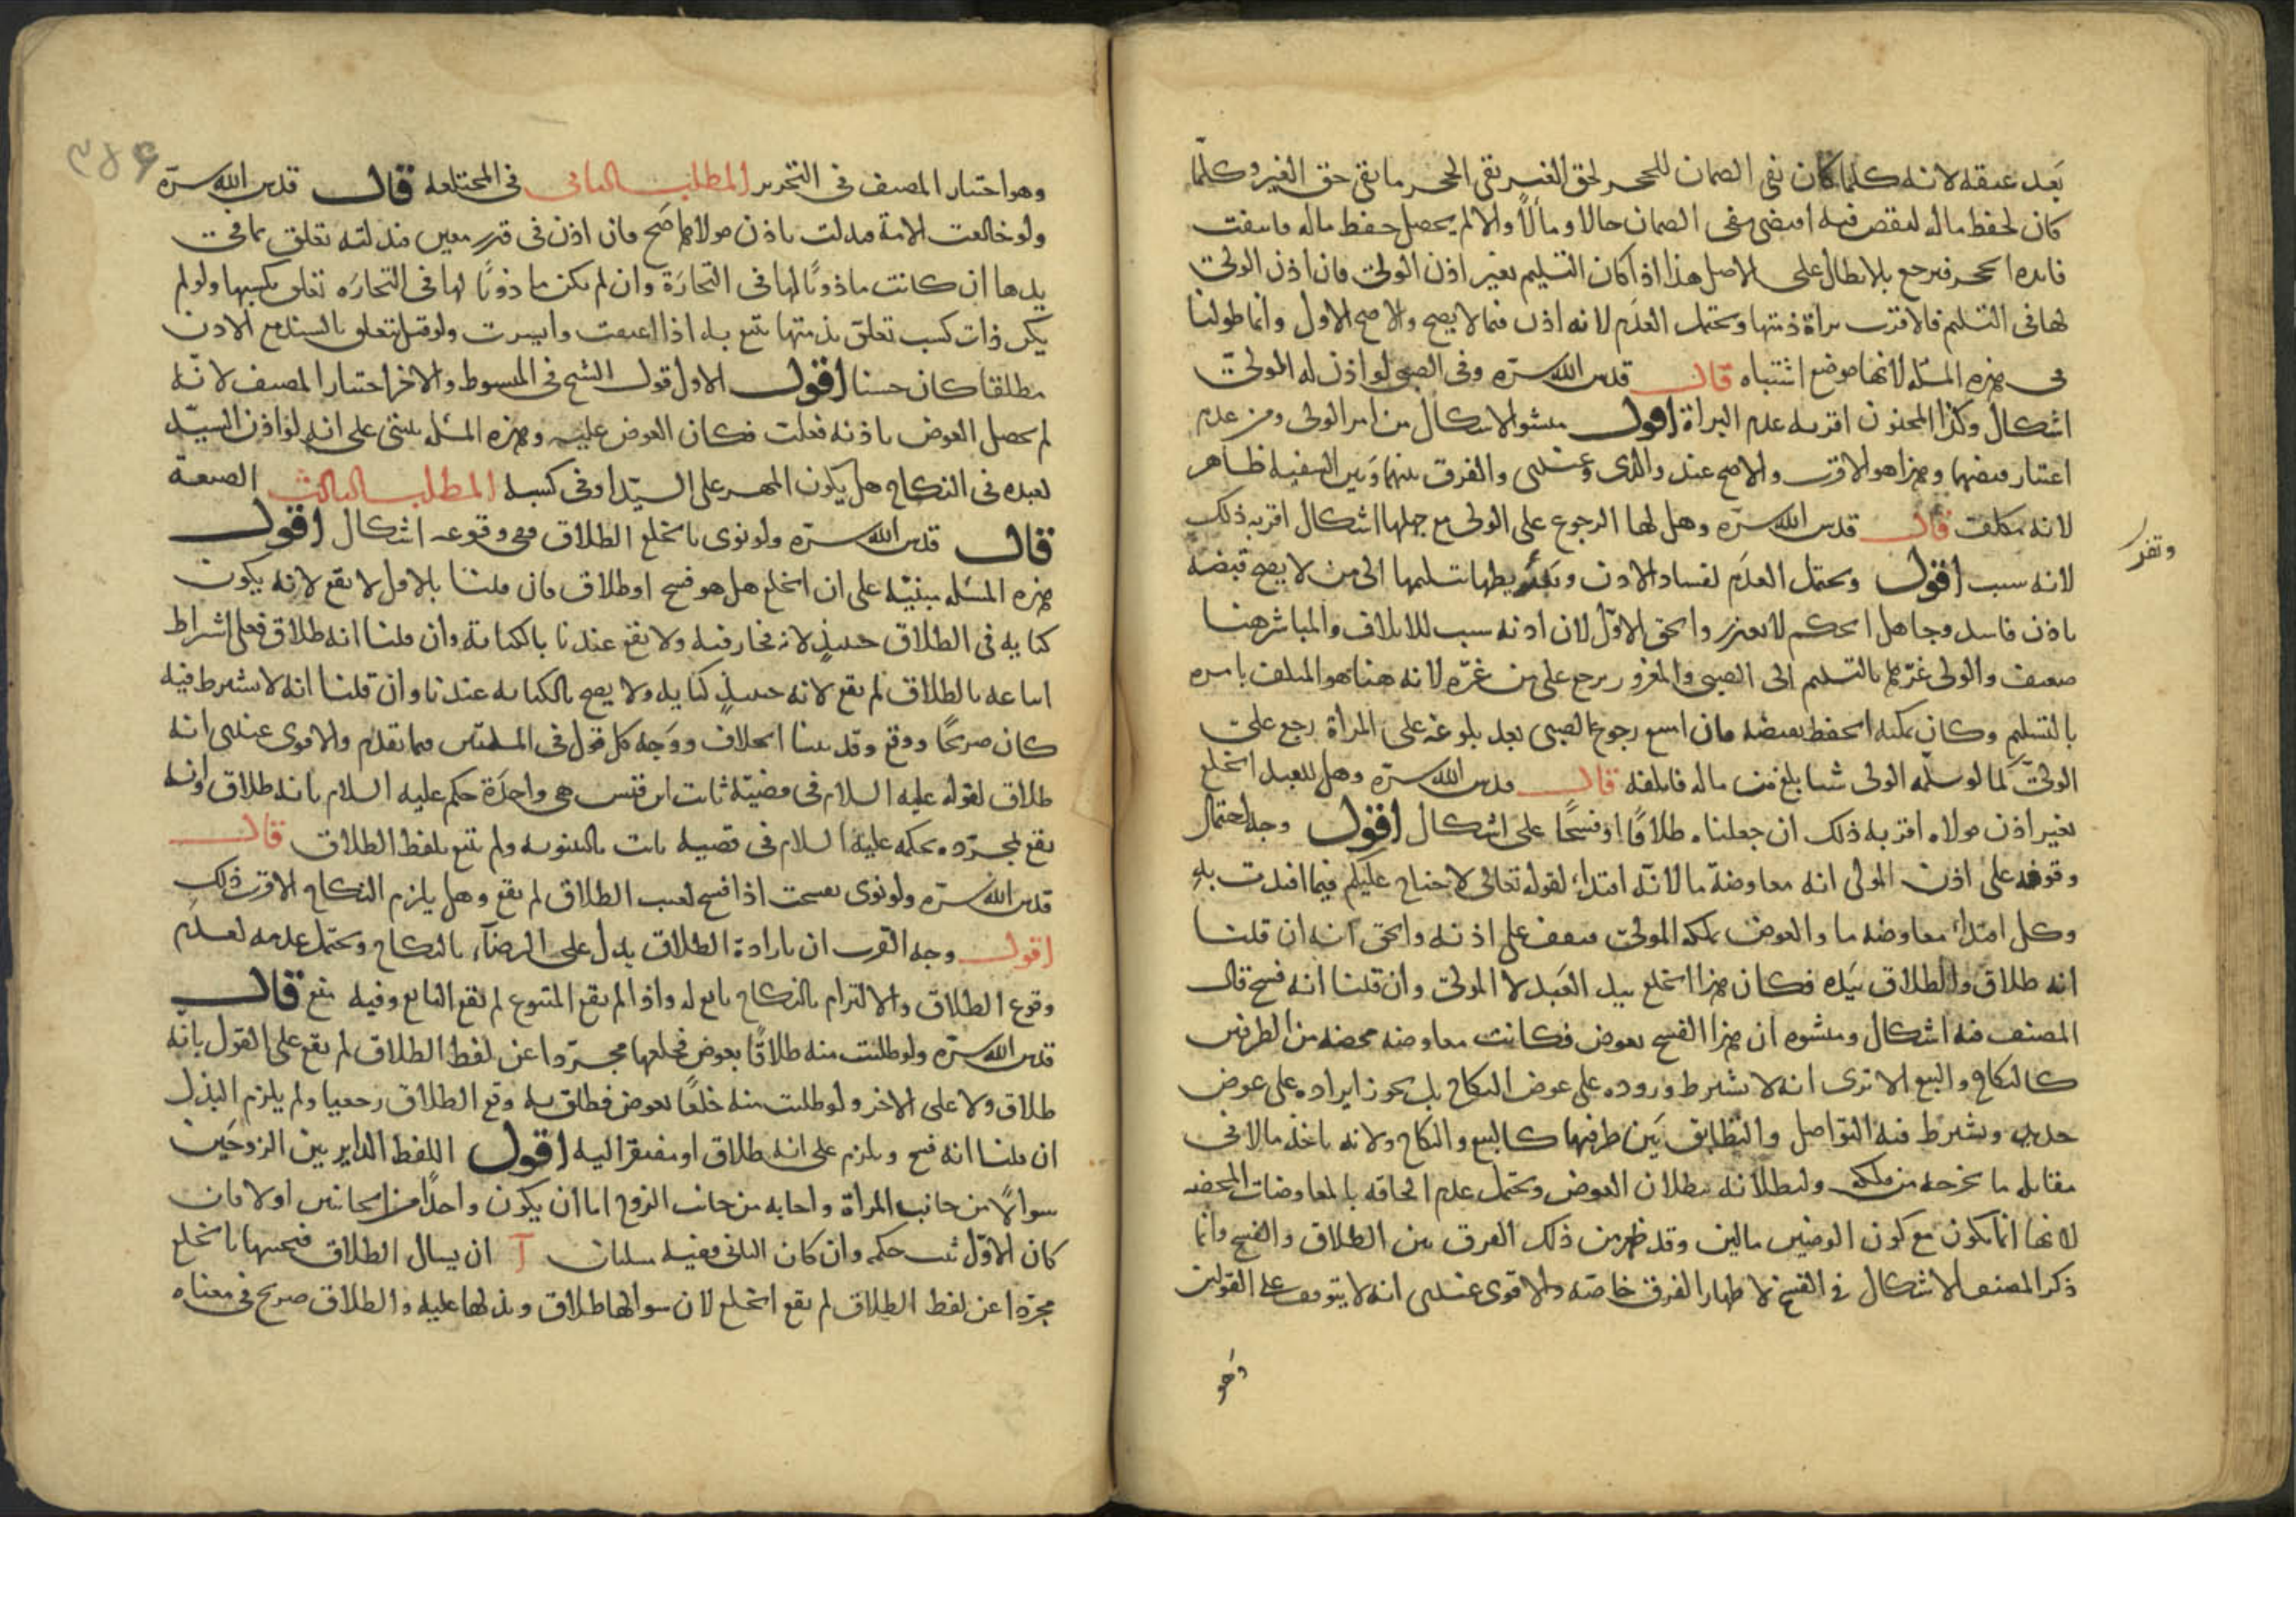 بعد عتقه لانه كلما كان نفى الضمان للحجر لحق الغير بقى الحجر ما بقى حق الغير وكلما
كان لحفظ ماله لنقص فيه اقتضى نفى الضمان حالا ومآلاً والا لم يحصل حفظ ماله فانتفت
فايدة الحجر فيرجع بالابطال على الاصل هذا اذا كان التسليم بغير اذن الولى فان اذن الولى
لها فى التسليم فالاقرب براة ذمتها ويحتمل العدم لانه اذن فيما لا يصح والاصح الاول وانما طولنا
فى هذه المسئلة لانها موضع اشتباه قال قدس الله سره وفى الصبى لو اذن له المولى
اشكال وكذا المجنون اقربه عدم البراة اقول منشؤ الاشكال من امر الولى ومن عدم
اعتبار قبضهما وهذا هو الاقرب والاصح عند والدى وعندى والفرق بينهما وبين السفيه ظاهر
لانه مكلف قال قدس الله سره وهل لها الرجوع على الولى مع جهلها اشكال اقربه ذلك
لانه سبب اقول ويحتمل العدم لفساد الاذن وتفريطها بتسليمها الى من لا يصح قبضه
باذن فاسد وجاهل الحكم لا يعذر والحق الاول لان اذنه سبب للاتلاف والمباشر هنا
ضعيف والولى غرهم بالتسليم الى الصبى والمغرور يرجع على من غره لانه هنا هو المتلف بامره
بالتسليم وكان يمكنه الحفظ بقبضه فان اتبع رجوع الصبى بعد بلوغه على المراة رجع على
الولى كما لو سلمه الولى شيا بلغ من ماله فاتلفه قال قدس الله سره وهل للعبد الخلع
بغير اذن مولاه اقربه ذلك ان جعلناه طلاقًا او فسخًا على اشكال اقول وجه احتمال
وقوفه على اذن المولى انه معاوضة ما لانه افتداء لقوله تعالى لا جناح عليكم فيما افتدت به
وكل افتداء معاوضه ما والعوض يملكه المولى فيقف على اذنه والحق انه ان قلنا
انه طلاق والطلاق بيده فكان هذا الخلع بيد العبد لا المولى وان قلنا انه فسخ قال
المصنف فيه اشكال ومنشوه ان هذا الفسخ بعوض فكانت معاوضه محضه من الطرفين
كالنكاح والبيع الا ترى انه لا يشترط وروده على عوض النكاح بل يجوز ايراده على عوض
جديد ويشترط فيه التواصل والتطابق بين طرفيها كالبيع والنكاح ولانه ياخذ مالا فى
مقابله ما يخرجه من ملكه ولبطلانه ببطلان العوض ويحتمل عدم الحاقه بالمعاوضات المحضه
لانها انما تكون مع كون العوضين مالين وقد ظهر من ذلك الفرق بين الطلاق والفسخ وانما
ذكر المصنف الاشكال فى الفسخ لاظهار الفرق خاصة والاقوى عندى انه لا يتوقف على القولين
وهو
وتفر
وهو اختيار المصنف فى التحرير المطلب الثانى فى المختلعه قال قدس الله سره
ولو خالعت الامة فبذلت باذن مولاها صح فان اذن فى قدر معين فبذلته تعلق بما فى
يدها ان كانت ماذونًا لها فى التجارة وان لم تكن ماذونًا لها فى التجاره تعلق بكسبها ولو لم
يكن ذات كسب تعلق بذمتها تتبع به اذا اعتقت وايسرت ولو قيل تعلق بالسيد مع الاذن
مطلقا كان حسنا اقول الاول قول الشيخ فى المبسوط والاخر اختيار المصنف لانه
لم يحصل العوض باذنه فعلت فكان العوض عليه وهذه المسئله تبتنى على انه لو اذن السيد
لعبده فى النكاح هل يكون المهر على السيد او فى كسبه المطلب الثالث الصيغة
قال قدس الله سره ولو نوى بالخلع الطلاق ففى وقوعه اشكال اقول
هذه المسئله مبنيه على ان الخلع هل هو فسخ او طلاق فان قلنا بالاول لا يقع لانه يكون
كنايه فى الطلاق حينئذٍ لانه مجاز فيه ولا يقع عندنا بالكناية وان قلنا انه طلاق فعلى اشتراط
اتباعه بالطلاق لم يقع لانه حينئذٍ كنايه ولا يصح بالكنايه عندنا وان قلنا انه لا يشترط فيه
كان صريحًا ووقع وقد بينا الخلاف ووجه كل قول فى المسئلتين فيما تقدم والاقوى عندى انه
طلاق لقوله عليه السلام فى قضية ثابت ابن قيس هى واحدة حكم عليه السلام بانه طلاق وانه
يقع بمجرده بحكمه عليه السلام فى قضيه ثابت بالبينونه ولم يتبع بلفظ الطلاق قال
قدس الله سره ولو نوى بفسخت اذا فسخ لعيب الطلاق لم يقع وهل يلزم النكاح الاقرب ذلك
اقول وجه القرب ان بارادة الطلاق يدل على الرضاء بالنكاح ويحتمل عدمه لعدم
وقوع الطلاق والالتزام بالنكاح تابع له واذا لم يقع المتبوع لم يقع التابع وفيه منع قال
قدس الله سره ولو طلبت منه طلاقًا بعوض فخلعها مجردا عن لفظ الطلاق لم يقع على القول بانه
طلاق ولا على الاخر ولو طلبت منه خلعًا بعوض فطلق به وقع الطلاق رجعيا ولم يلزم البذل
ان قلنا انه فسخ ويلزم على انه طلاق او مفتقرا اليه اقول اللفظ الداير بين الزوجين
سوالاً من جانب المراة واجابه من جانب الزوج اما ان يكون واحدًا من الجانبين اولا فان
كان الاول ثبت حكمه وان كان الثانى ففيه مسئلتان آ ان يسال الطلاق فيجيبها بالخلع
مجردا عن لفظ الطلاق لم يقع الخلع لان سوالها طلاق وبذلها عليه والطلاق صريح فى معناه